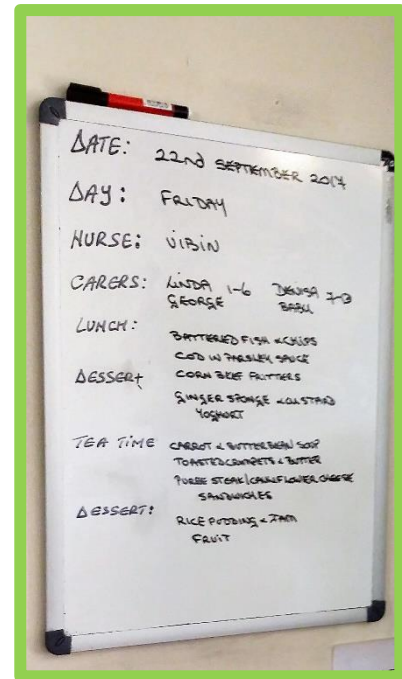 DATE: 22ND SEPTEMBER 2017
DAY: FRIDAY
NURSE: VIBIN
CARERS: LINDA 1-6 DENISA 7-13
GEORGE BABU
LUNCH:
BATTERED FISH & CHIPS
COD IN PARSLEY SAUCE
DESSERT CORN BEEF FRITTERS
GINGER SPONGE & CUSTARD
YOGHURT
TEA TIME CARROT & BUTTERBEAN SOUP
TOASTED CRUMPETS & BUTTER
PUREE STEAK/CAULIFLOWER CHEESE
SANDWICHES
DESSERT: RICE PUDDING & JAM
FRUIT